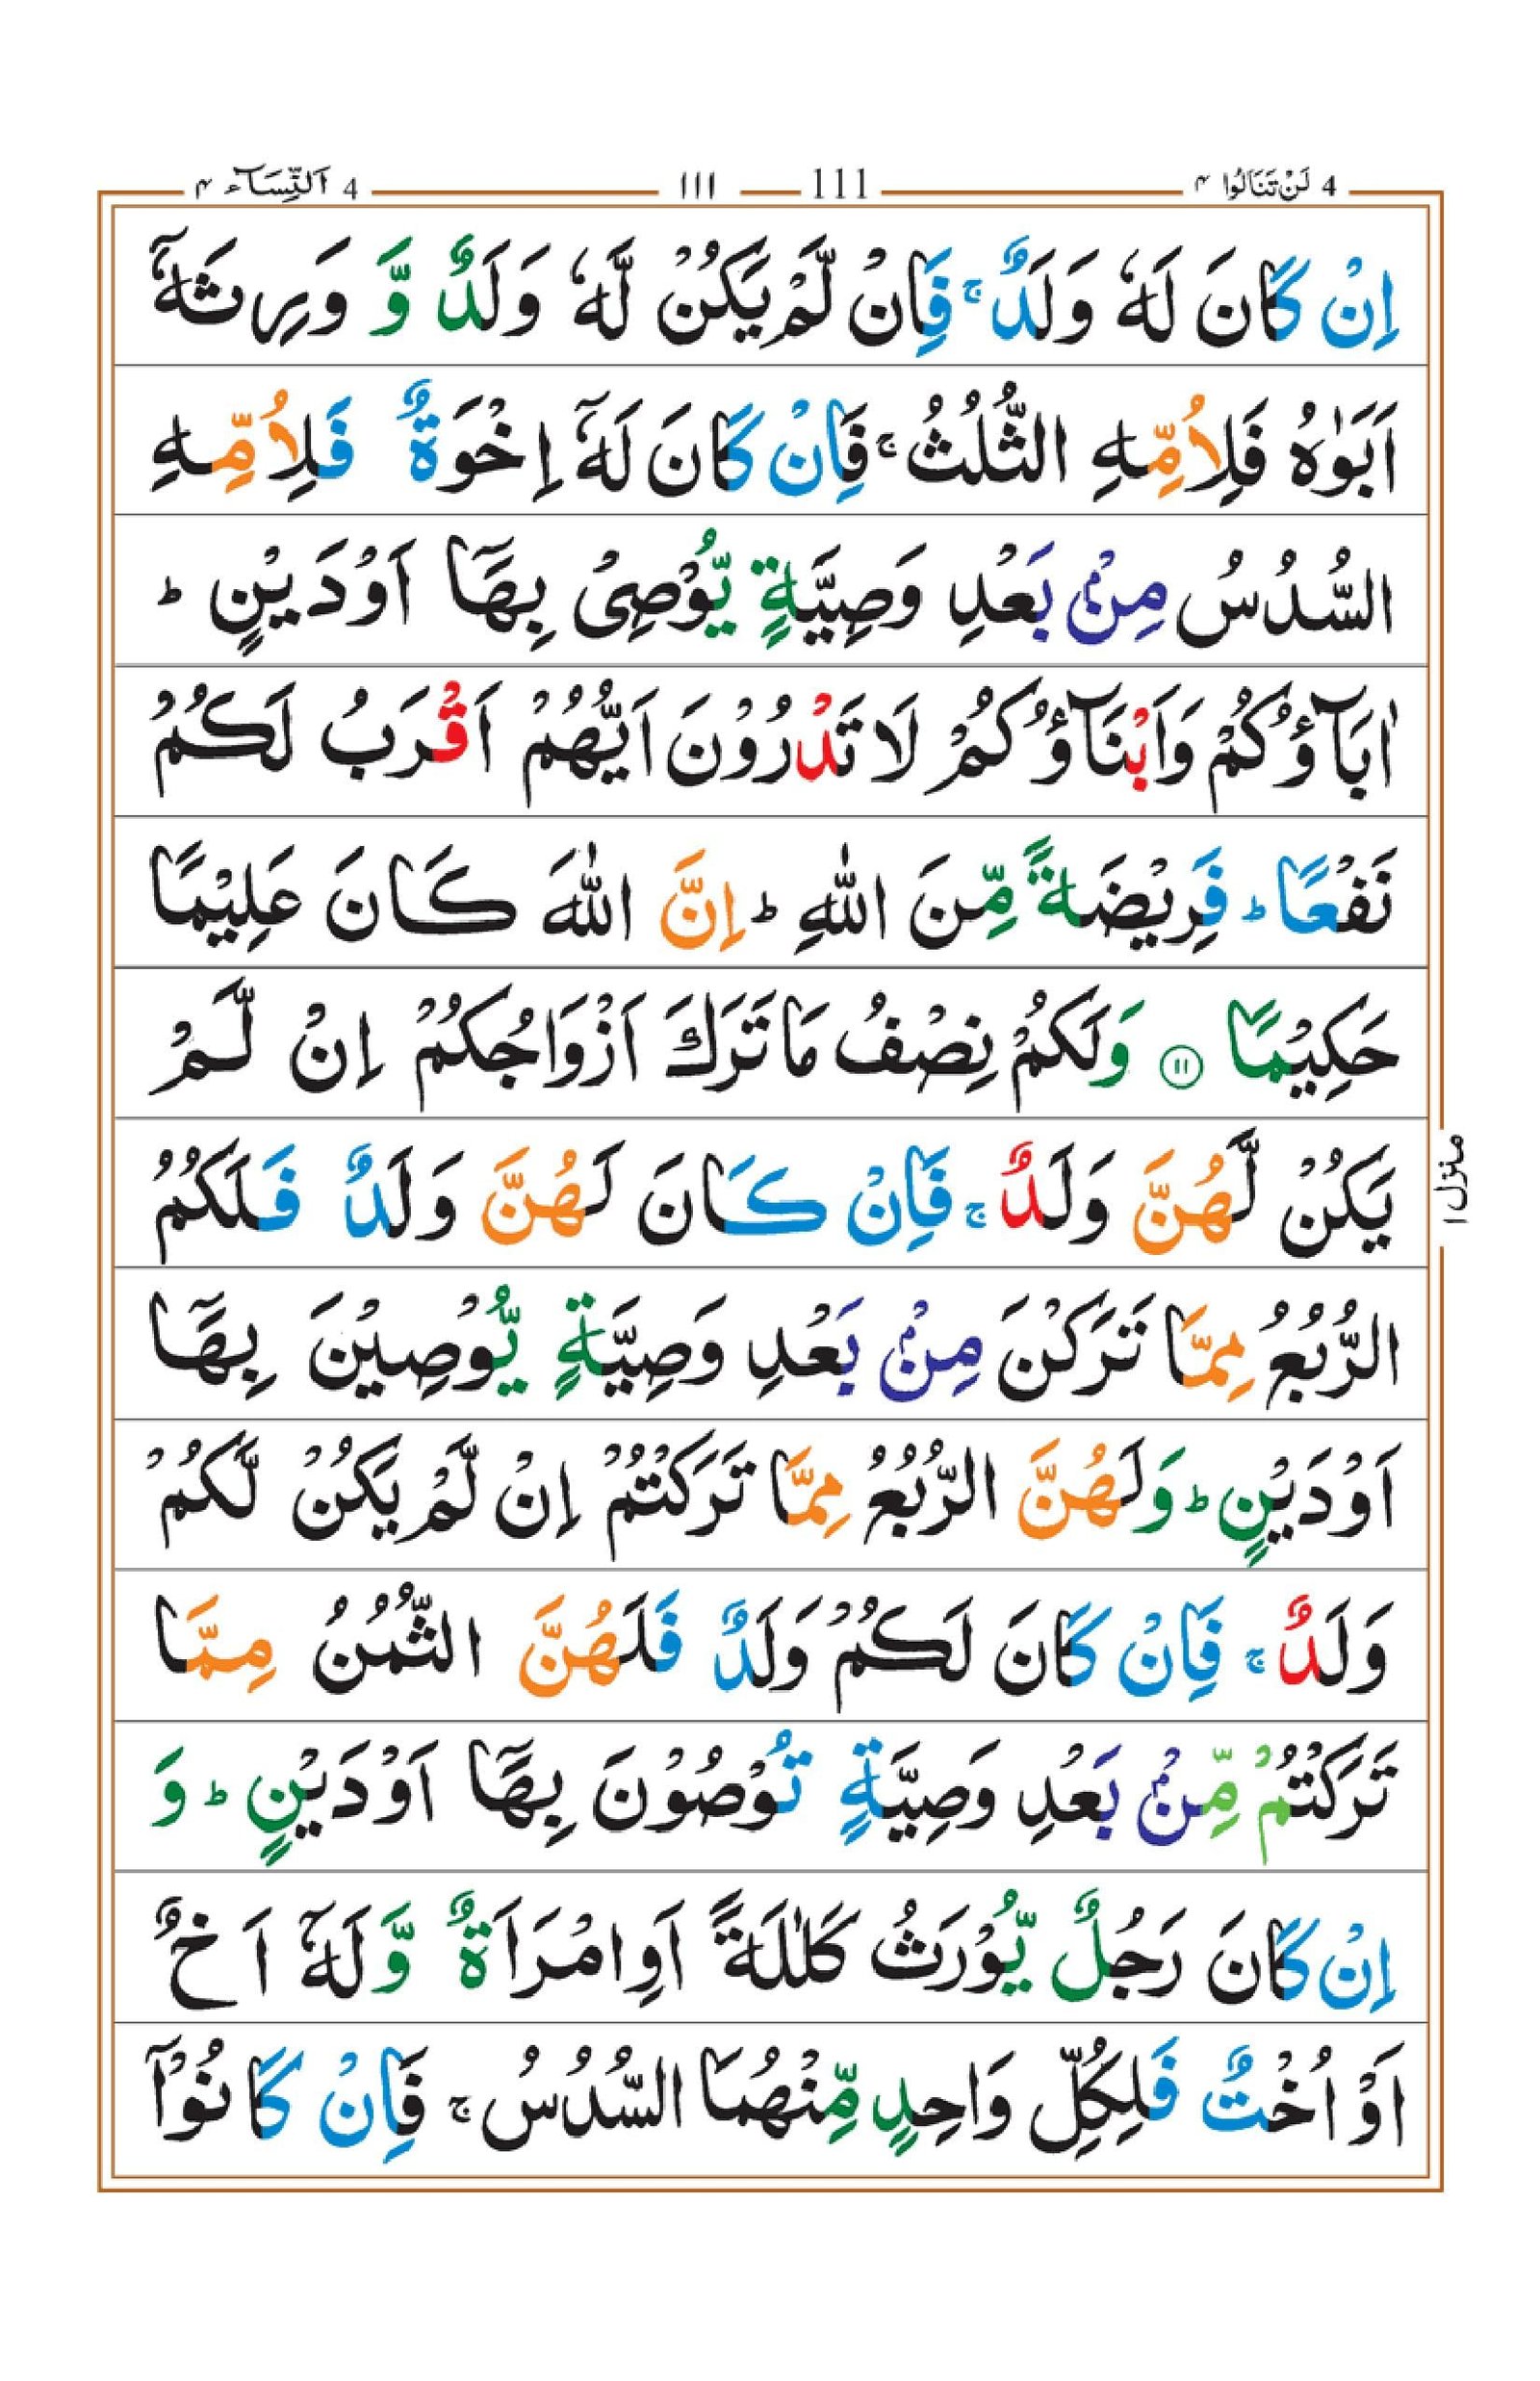 4 لَنْ تَنَالُوا ۴ 111 ۱۱۱ 4 اَلنِّسَآء ۴
اِنْ كَانَ لَهٗ وَلَدٌ ۚ فَاِنْ لَّمْ يَكُنْ لَّهٗ وَلَدٌ وَّ وَرِثَهٗۤ
اَبَوٰهُ فَلِاُمِّهِ الثُّلُثُ ۚ فَاِنْ كَانَ لَهٗۤ اِخْوَةٌ فَلِاُمِّهِ
السُّدُسُ مِنْۢ بَعْدِ وَصِيَّةٍ يُّوْصِىْ بِهَاۤ اَوْ دَيْنٍ ؕ
اٰبَآؤُكُمْ وَاَبْنَآؤُكُمْ لَا تَدْرُوْنَ اَيُّهُمْ اَقْرَبُ لَكُمْ
نَفْعًا ؕ فَرِيْضَةً مِّنَ اللّٰهِ ؕ اِنَّ اللّٰهَ كَانَ عَلِيْمًا
حَكِيْمًا ۱۱ وَلَكُمْ نِصْفُ مَا تَرَكَ اَزْوَاجُكُمْ اِنْ لَّمْ
يَكُنْ لَّهُنَّ وَلَدٌ ۚ فَاِنْ كَانَ لَهُنَّ وَلَدٌ فَلَكُمُ
الرُّبُعُ مِمَّا تَرَكْنَ مِنْۢ بَعْدِ وَصِيَّةٍ يُّوْصِيْنَ بِهَاۤ
اَوْ دَيْنٍ ؕ وَلَهُنَّ الرُّبُعُ مِمَّا تَرَكْتُمْ اِنْ لَّمْ يَكُنْ لَّكُمْ
وَلَدٌ ۚ فَاِنْ كَانَ لَكُمْ وَلَدٌ فَلَهُنَّ الثُّمُنُ مِمَّا
تَرَكْتُمْ مِّنْۢ بَعْدِ وَصِيَّةٍ تُوْصُوْنَ بِهَاۤ اَوْ دَيْنٍ ؕ وَ
اِنْ كَانَ رَجُلٌ يُّوْرَثُ كَلٰلَةً اَوِ امْرَاَةٌ وَّلَهٗۤ اَخٌ
اَوْ اُخْتٌ فَلِكُلِّ وَاحِدٍ مِّنْهُمَا السُّدُسُ ۚ فَاِنْ كَانُوْۤا
منزل ۱